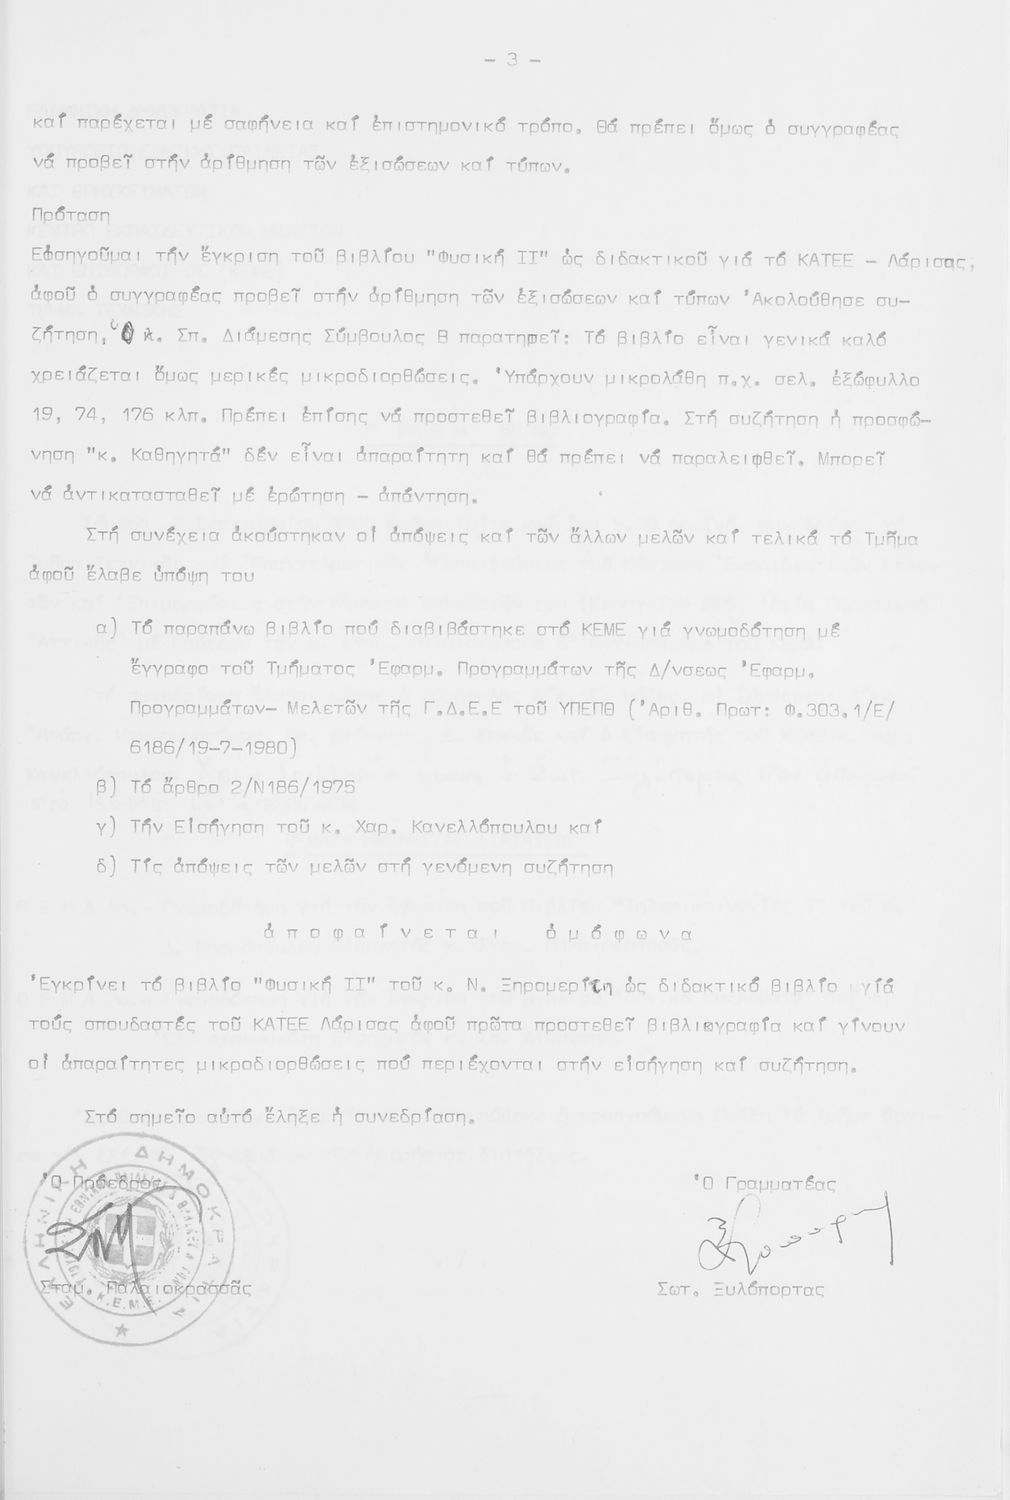 - 3 -
καί παρέχεται μέ σαφήνεια καί ἐπιστημονικό τρόπο. Θά πρέπει ὅμως ὁ συγγραφέας
νά προβεῖ στήν ἀρίθμηση τῶν ἐξισώσεων καί τύπων.
Πρόταση
Εἰσηγοῦμαι τήν ἔγκριση τοῦ βιβλίου "Φυσική ΙΙ" ὡς διδακτικοῦ γιά τό ΚΑΤΕΕ - Λάρισας,
ἀφοῦ ὁ συγγραφέας προβεῖ στήν ἀρίθμηση τῶν ἐξισώσεων καί τύπων Ἀκολούθησε συ-
ζήτηση, Ὁ κ. Σπ. Διάμεσης Σύμβουλος Β παρατηρεῖ: Τό βιβλίο εἶναι γενικά καλό
χρειάζεται ὅμως μερικές μικροδιορθώσεις. Ὑπάρχουν μικρολάθη π.χ. σελ. ἐξώφυλλο
19, 74, 176 κλπ. Πρέπει ἐπίσης νά προστεθεῖ βιβλιογραφία. Στή συζήτηση ἡ προσφώ-
νηση "κ. Καθηγητά" δέν εἶναι ἀπαραίτητη καί θά πρέπει νά παραλειφθεῖ. Μπορεῖ
νά ἀντικατασταθεῖ μέ ἐρώτηση - ἀπάντηση.
Στή συνέχεια ἀκούστηκαν οἱ ἀπόψεις καί τῶν ἄλλων μελῶν καί τελικά τό Τμῆμα
ἀφοῦ ἔλαβε ὑπόψη του
α) Τό παραπάνω βιβλίο πού διαβιβάστηκε στό ΚΕΜΕ γιά γνωμοδότηση μέ
ἔγγραφο τοῦ Τμήματος Ἐφαρμ. Προγραμμάτων τῆς Δ/νσεως Ἐφαρμ.
Προγραμμάτων- Μελετῶν τῆς Γ.Δ.Ε.Ε τοῦ ΥΠΕΠΘ (Ἀριθ. Πρωτ: Φ.303.1/Ε/
6186/19-7-1980)
β) Τό ἄρθρο 2/Ν186/1975
γ) Τήν Εἰσήγηση τοῦ κ. Χαρ. Κανελλόπουλου καί
δ) Τίς ἀπόψεις τῶν μελῶν στή γενόμενη συζήτηση
ἀ π ο φ α ί ν ε τ α ι   ὁ μ ό φ ω ν α
Ἐγκρίνει τό βιβλίο "Φυσική ΙΙ" τοῦ κ. Ν. Ξηρομερίτη ὡς διδακτικό βιβλίο γιά
τούς σπουδαστές τοῦ ΚΑΤΕΕ Λάρισας ἀφοῦ πρῶτα προστεθεῖ βιβλιογραφία καί γίνουν
οἱ ἀπαραίτητες μικροδιορθώσεις πού περιέχονται στήν εἰσήγηση καί συζήτηση.
Στό σημεῖο αὐτό ἔληξε ἡ συνεδρίαση.
Ὁ Πρόεδρος
Ὁ Γραμματέας
ΕΛΛΗΝΙΚΗ ΔΗΜΟΚΡΑΤΙΑ
Κ.Ε.Μ.Ε.
Σταμ. Παλαιοκρασσᾶς
Σωτ. Ξυλόπορτας